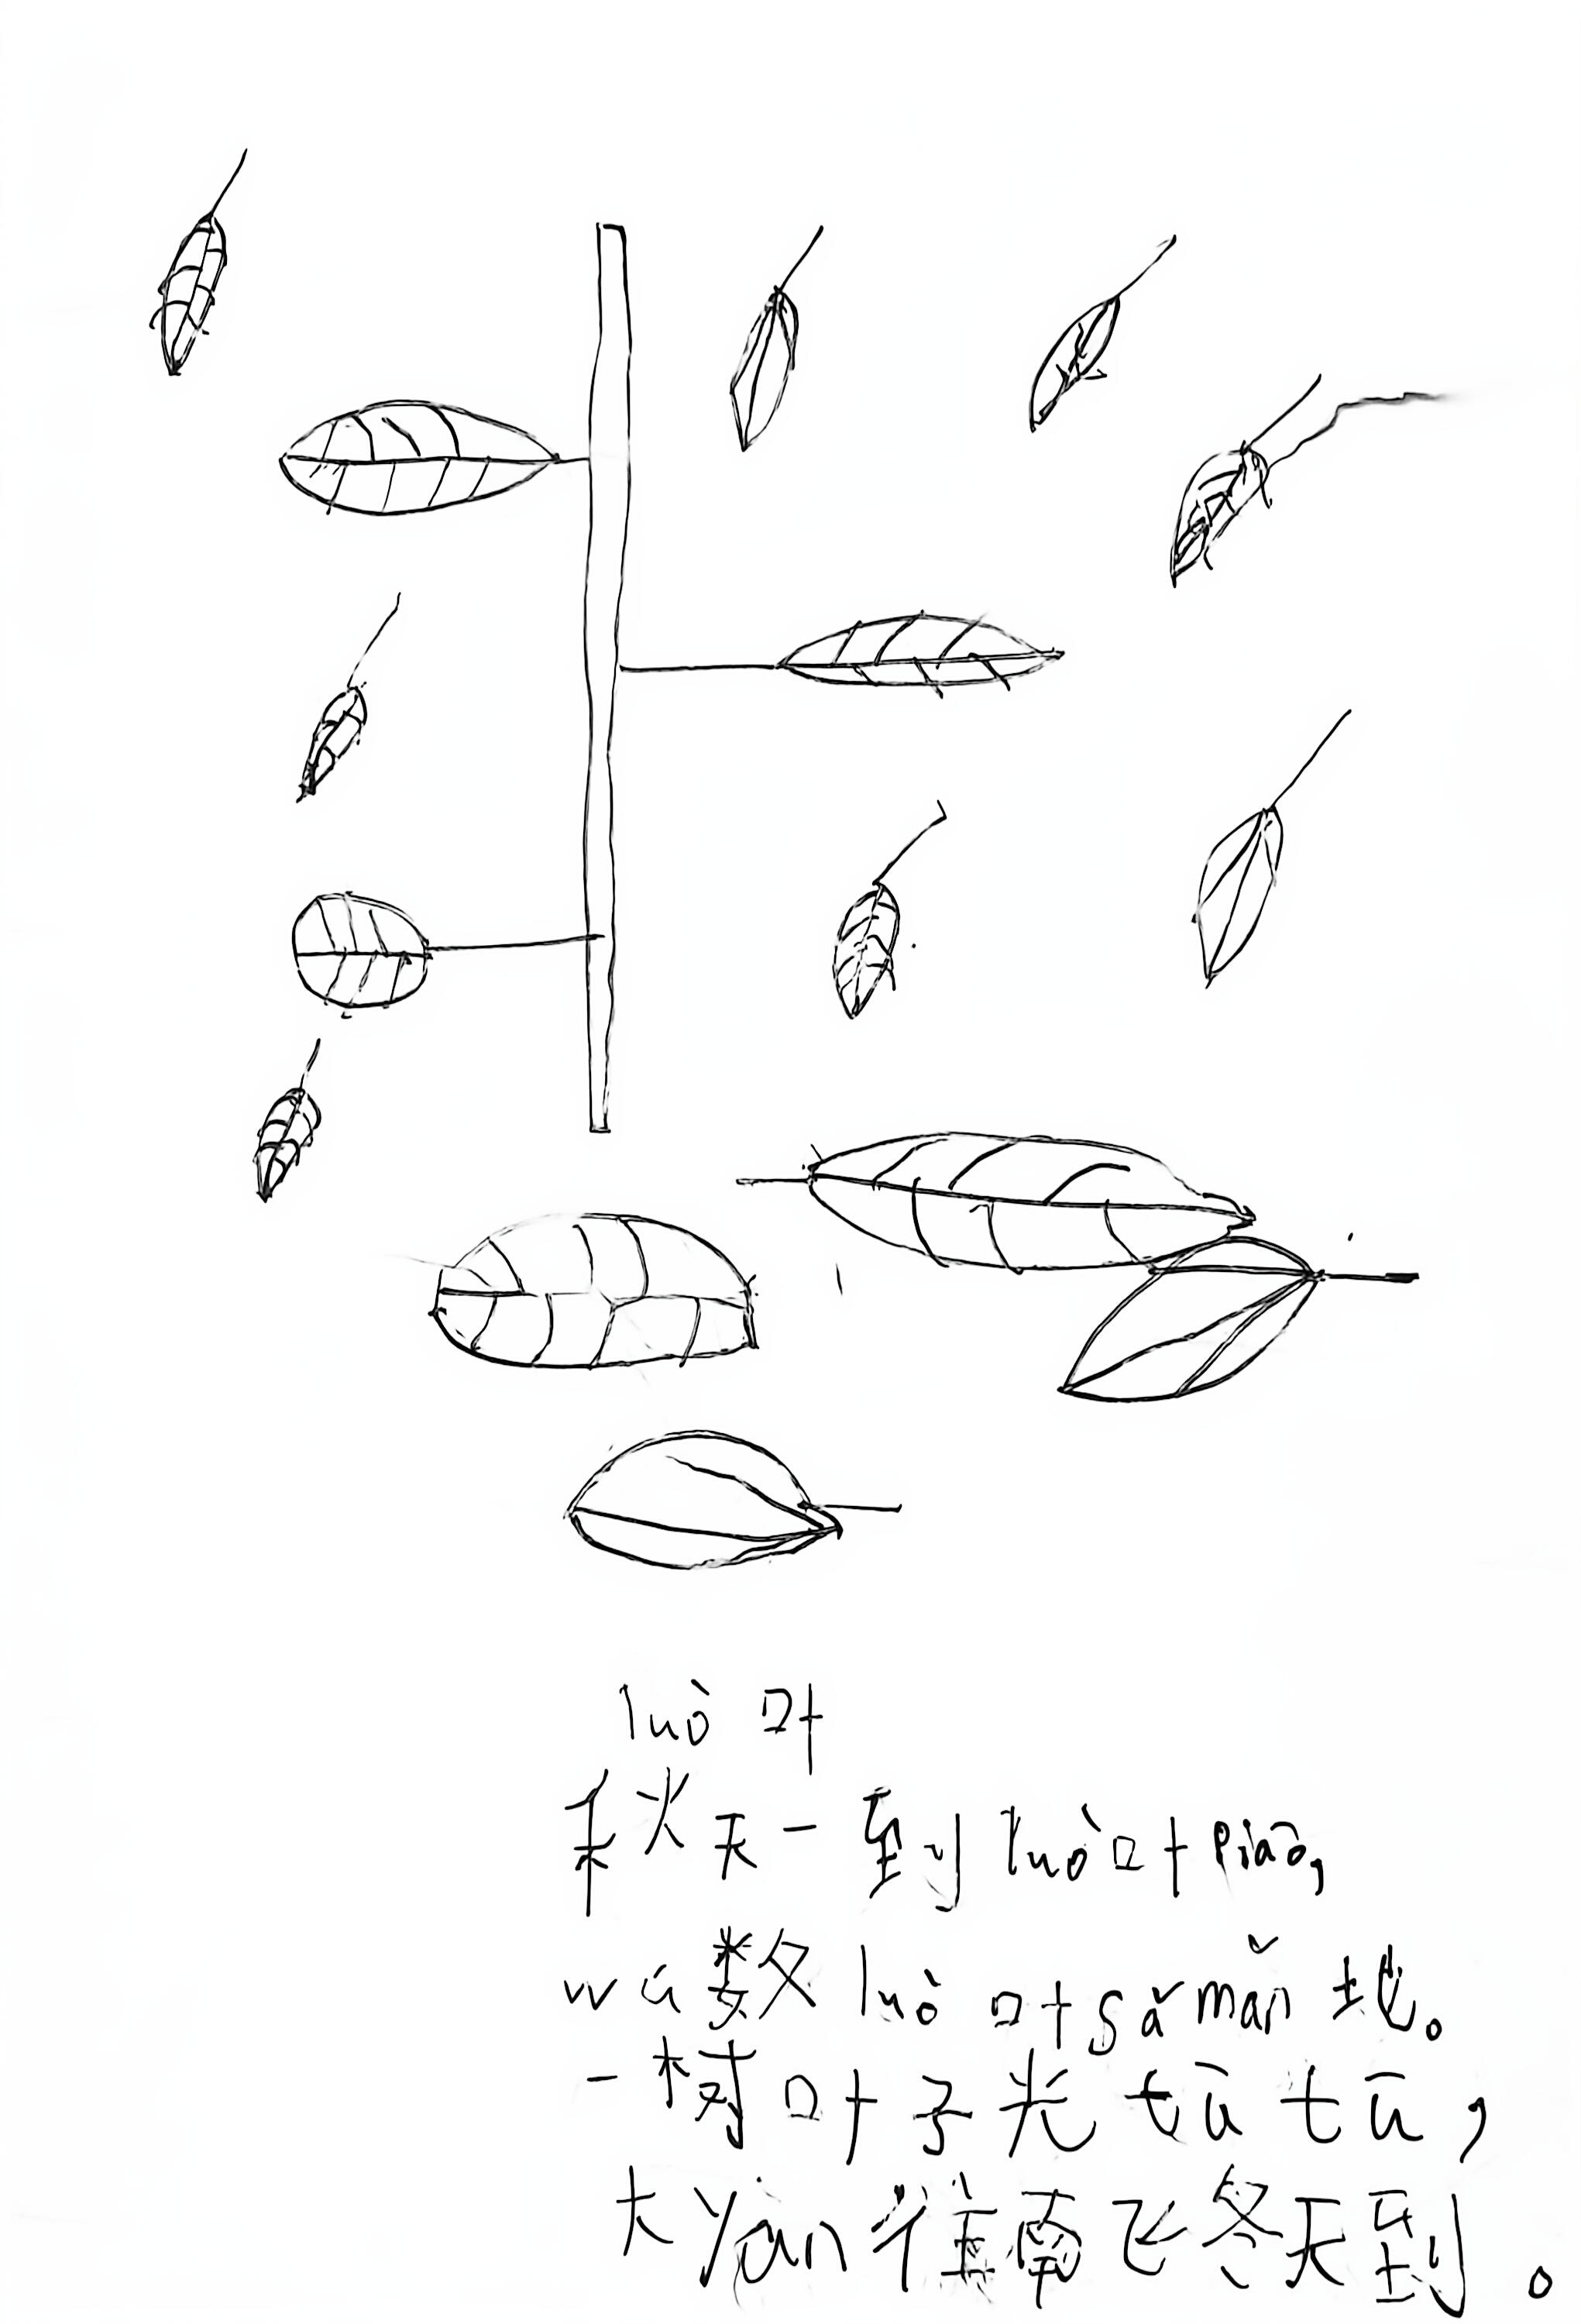 luò 叶
秋天一到 luò 叶 piāo,
wú 数 luò 叶 sǎ mǎn 地。
一树叶子光 tū tū,
大 yàn 往南飞冬天到。